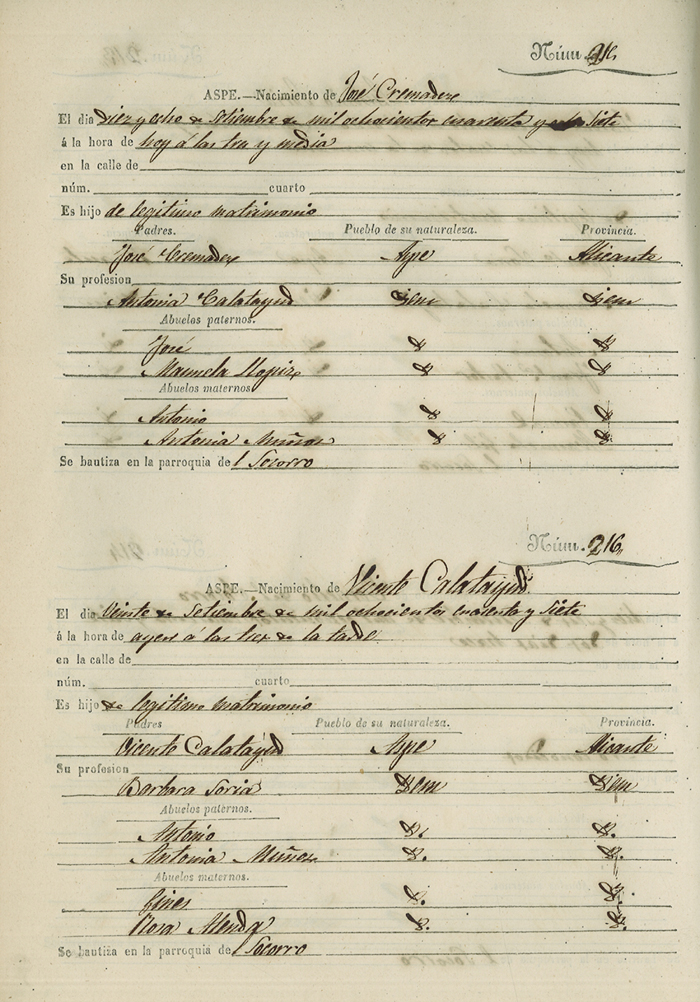 Núm. 216
ASPE.—Nacimiento de José Cremades
El dia diez y ocho de Setiembre de mil ochocientos cuarenta y siete
á la hora de hoy á las tres y media
en la calle de
núm. cuarto
Es hijo de legitimo matrimonio
Padres. Pueblo de su naturaleza. Provincia.
José Cremades Aspe Alicante
Su profesion
Antonia Calatayud Idem Idem
Abuelos paternos.
José
Manuela Llopiz
Abuelos maternos
Antonio
Antonia Muñoz
Se bautiza en la parroquia de l Socorro
Núm. 216,
ASPE.—Nacimiento de Vicente Calatayud.
El dia Veinte de Setiembre de mil ochocientos cuarenta y siete
á la hora de ayer á las tres de la tarde.
en la calle de
núm. cuarto
Es hijo de legitimo matrimonio
Padres Pueblo de su naturaleza. Provincia.
Vicente Calatayud Aspe Alicante
Su profesion
Barbara Soria Idem Idem
Abuelos paternos.
Antonio
Antonia Muñoz
Abuelos maternos.
Gines
Rosa Alenda
Se bautiza en la parroquia de l Socorro